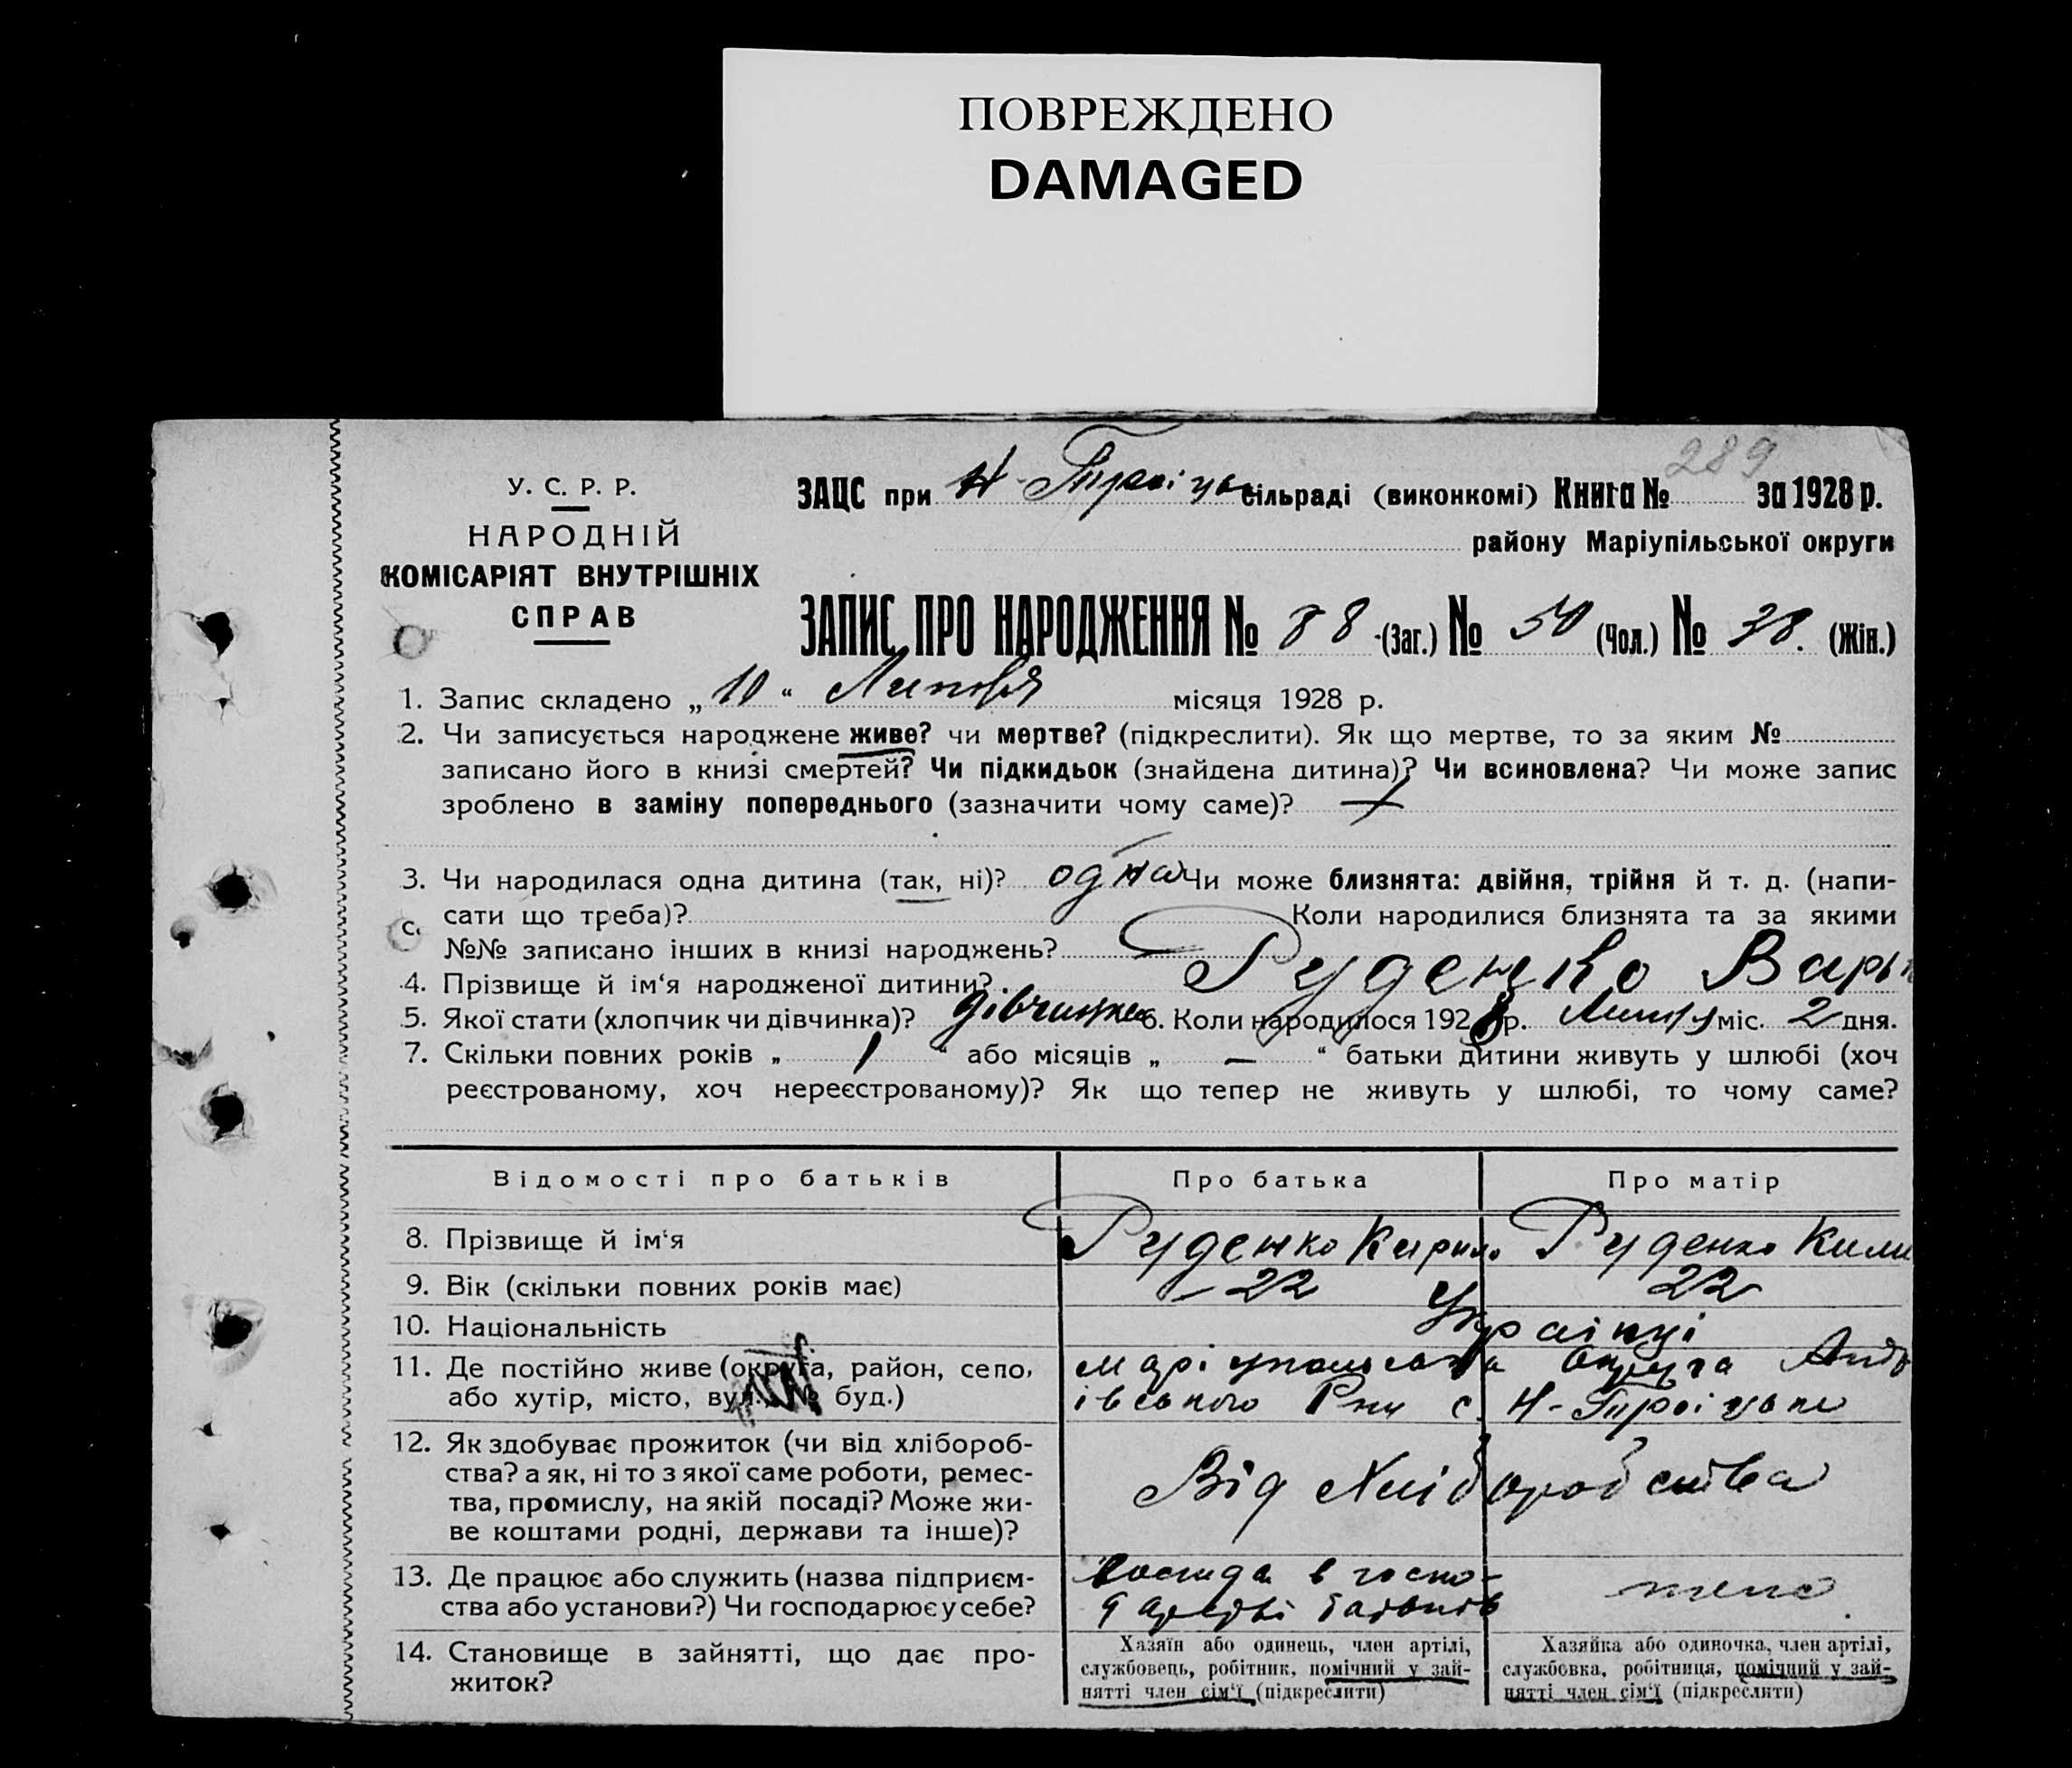 ПОВРЕЖДЕНО
DAMAGED
289
У. С. Р. Р.
НАРОДНІЙ
КОМІСАРІЯТ ВНУТРІШНІХ
СПРАВ
ЗАЦС при Н-Троіцьк сільраді (виконкомі) Книга № за 1928 р.
району Маріупільської округи
ЗАПИС ПРО НАРОДЖЕННЯ № 88 (Заг.) № 50 (Чол.) № 38. (Жін.)
1. Запис складено „ 10 “ Липня місяця 1928 р.
2. Чи записується народжене живе? чи мертве? (підкреслити). Як що мертве, то за яким №
записано його в книзі смертей? Чи підкидьок (знайдена дитина)? Чи всиновлена? Чи може запис
зроблено в заміну попереднього (зазначити чому саме)?
3. Чи народилася одна дитина (так, ні)? одна Чи може близнята: двійня, трійня й т. д. (напи-
сати що треба)? Коли народилися близнята та за якими
№№ записано інших в книзі народжень?
4. Прізвище й ім‘я народженої дитини? Руденко Варь
5. Якої стати (хлопчик чи дівчинка)? дівчинка 6. Коли народилося 1928 р. Липня міс. 2 дня.
7. Скільки повних років „ 1 “ або місяців „ — “ батьки дитини живуть у шлюбі (хоч
реєстрованому, хоч нереєстрованому)? Як що тепер не живуть у шлюбі, то чому саме?
Відомості про батьків Про батька Про матір
8. Прізвище й ім‘я Руденко Кирило Руденко Кили
9. Вік (скільки повних років має) 22 22
10. Національність Украінці
11. Де постійно живе (округа, район, село, Маріупольська Округа Андр
або хутір, місто, вул. № буд.) івського Рну с. Н-Троіцьке
12. Як здобуває прожиток (чи від хлібороб- Від Хліборобства
ства? а як, ні то з якої саме роботи, ремес-
тва, промислу, на якій посаді? Може жи-
ве коштами родні, держави та інше)?
13. Де працює або служить (назва підприєм- в госпо-
ства або установи?) Чи господарює у себе? дарстві батьків
14. Становище в зайнятті, що дає про-
житок?
Хазяїн або одинець, член артілі,
службовець, робітник, помічний у зай-
нятті член сім‘ї (підкреслити)
Хазяйка або одиночка, член артілі,
службовка, робітниця, помічний у зай-
нятті член сім‘ї (підкреслити)